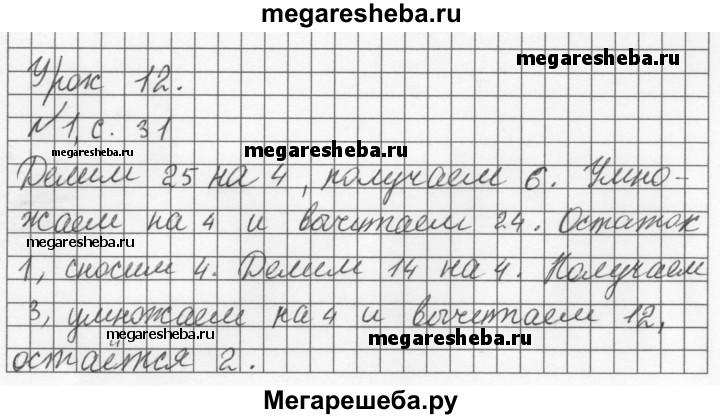 megaresheba.ru
Урок 12.
megaresheba.ru
№1, с. 31
megaresheba.ru
megaresheba.ru
Делим 25 на 4, получаем 6. Умно-
жаем на 4 и вычитаем 24. Остаток
megaresheba.ru
1, сносим 4. Делим 14 на 4. Получаем
3, умножаем на 4 и вычитаем 12,
megaresheba.ru
megaresheba.ru
остаётся 2.
Мегарешеба.ру